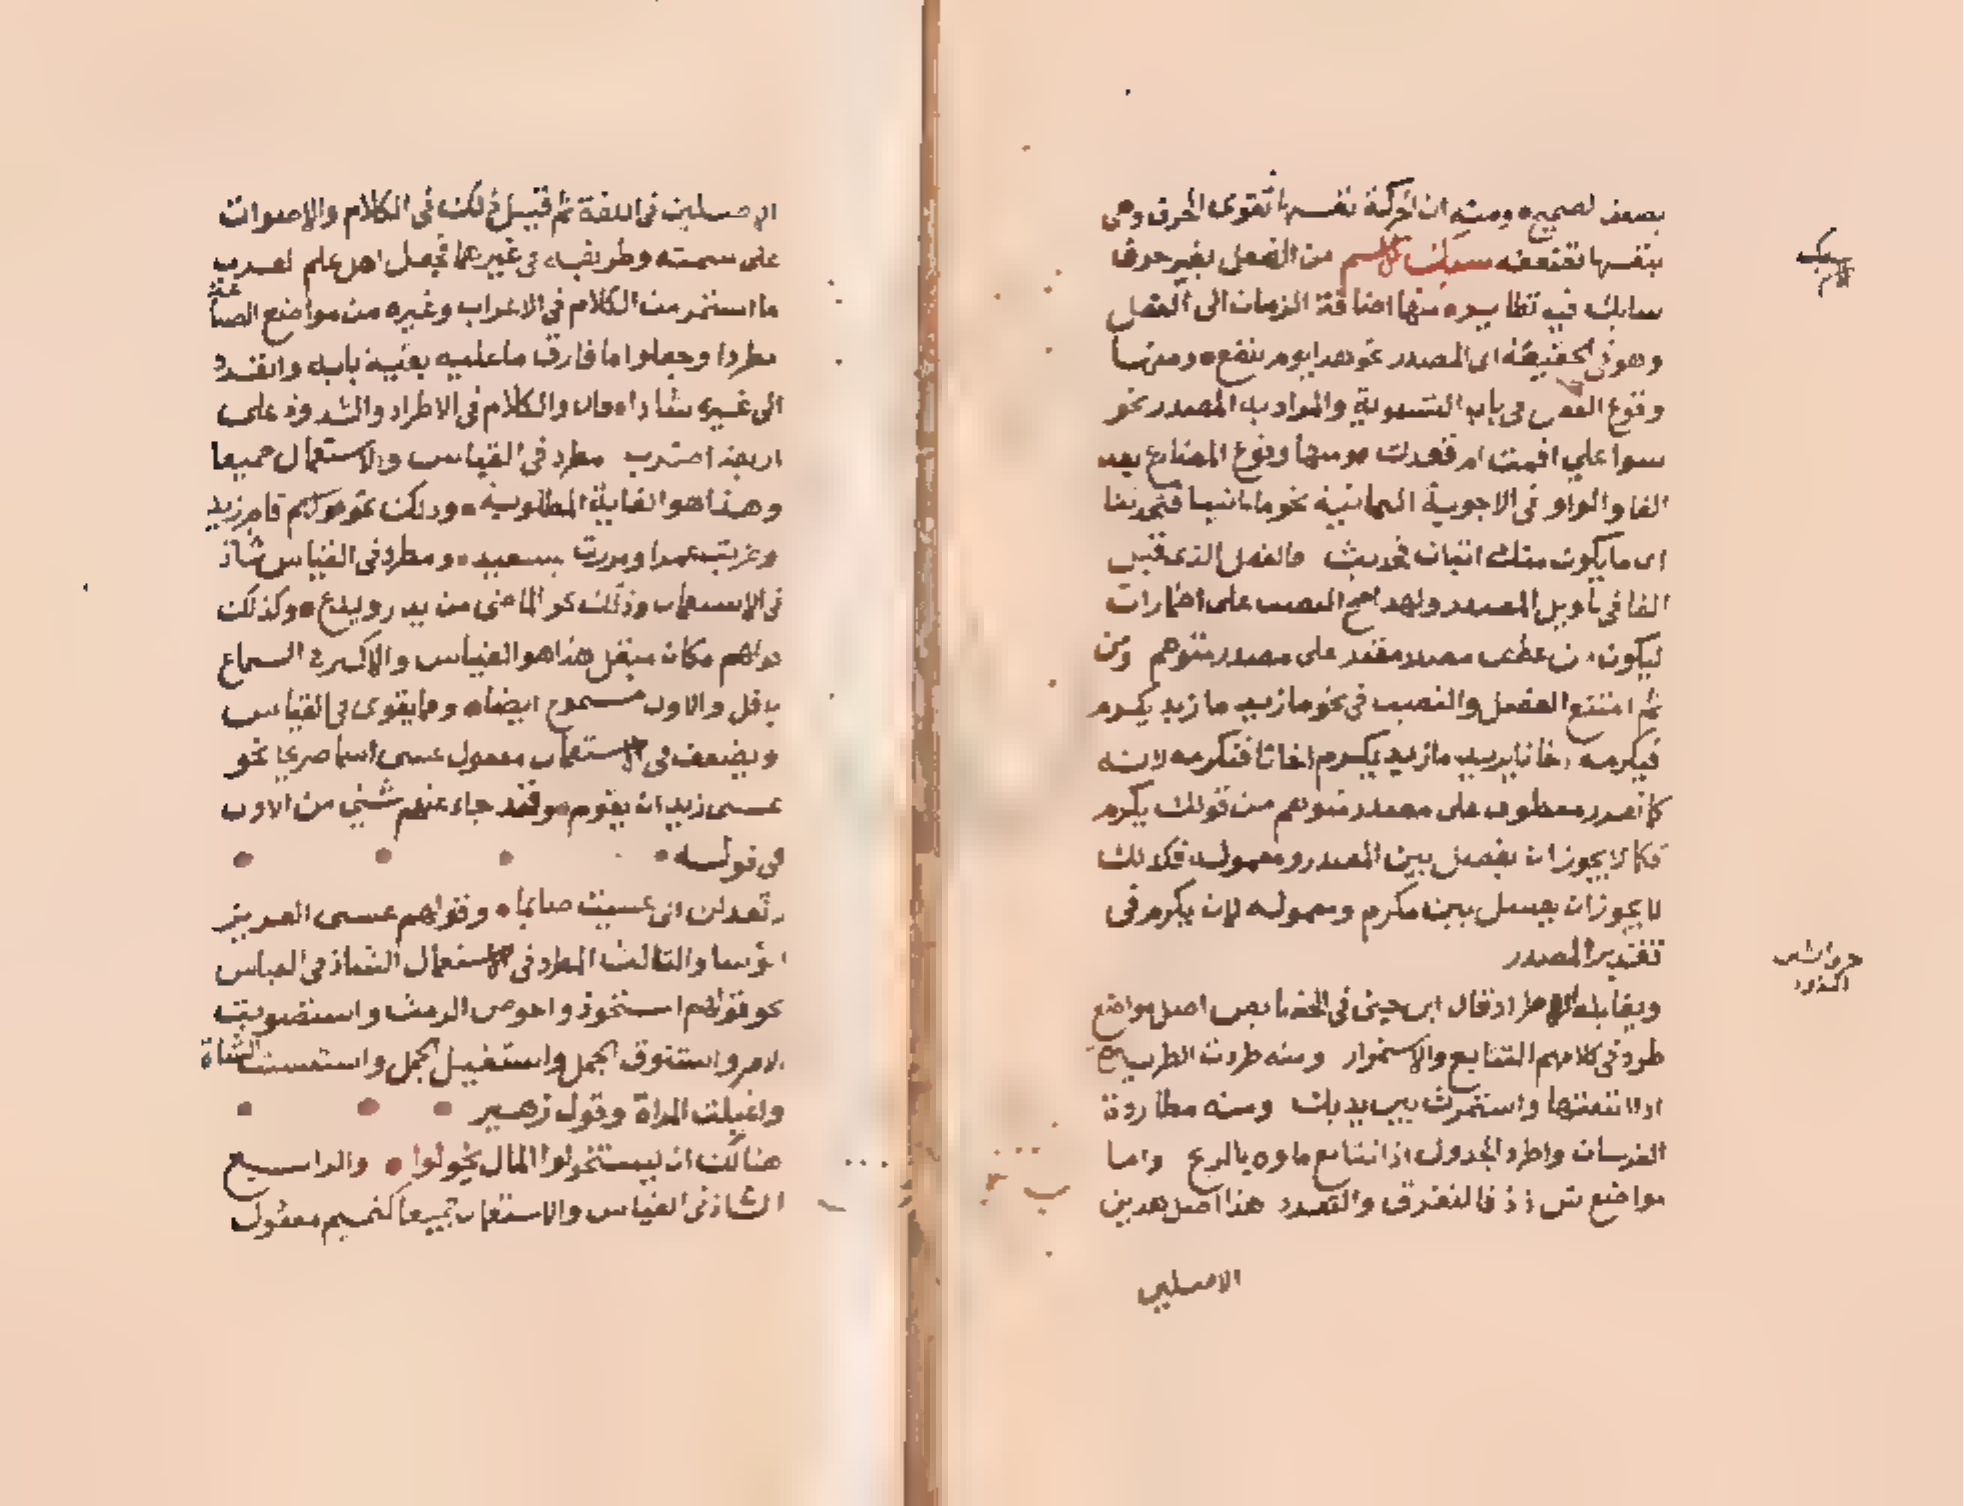 بضعف لصميره ومنه ان الحركة نفسها تقوى الحرف وهى
بنفسها تضعفه سبك الاسم من الفعل بغير حرف
سبك
الاسم
سابك فيه نظاير منها اضافة الزمان الى الفعل
وهو فى الحقيقة الى المصدر نحو هذا يوم ينفع ومنها
وقوع الفعل فى باب التسوية والمراد به المصدر نحو
سوا على اقمت ام قعدت ومنها وقوع المضارع بعد
الفا والواو فى الاجوبة الثمانية نحو ما تاتينا فتحدثنا
اى ما يكون منك اتيان فحديث فالفعل الذى قبل
الفا فى تاويل المصدر ولهذا صح النصب على اضمار ان
ليكون من عطف مصدر مقدر على مصدر متوهم ومن
ثم امتنع الفصل والنصب فى نحو ما زيد ما زيد يكرم
فيكرمه اخانا يريد ما زيد يكرم اخانا فنكرمه لانه
كما تصدر معطوف على مصدر متوهم من قولك يكرم
فكما لا يجوز ان يفصل بين المصدر ومعموله فكذلك
لا يجوز ان يفصل بين مكرم ومعموله لان يكرم فى
تقدير المصدر
ويقابله الاطراد قال ابن جنى فى الخصايص اصل مواضع
طرد فى كلامهم التتابع والاستمرار ومنه طردت الطريدة
اذا اتبعتها واستمرت بين يديك ومنه مطاردة
الفرسان واطرد الجدول اذا تتابع ماوه بالريح واما
مواضع ش ذ ذ فالتفرق والتفرد هذا اصل هذين
الاصلين
الاصلين فى اللغة ثم قيل ذلك فى الكلام والاصوات
على سمته وطريقه فى غيرهما فجعل اهل علم العرب
ما استمر من الكلام فى الاعراب وغيره من مواضع الصناعة
مطردا وجعلوا ما فارق ما عليه بقية بابه وانفرد
الى غيره شاذا قال والكلام فى الاطراد والشذوذ على
اربعة اضرب مطرد فى القياس والاستعمال جميعا
وهذا هو الغاية المطلوبة وذلك نحو قولهم قام زيد
وضربت عمرا ومررت بسعيد ومطرد فى القياس شاذ
فى الاستعمال وذلك نحو الماضى من يذر ويدع وكذلك
قولهم مكان مبقل هذا هو القياس والاكثر فى السماع
باقل والاول مسموع ايضا ومما يقوى فى القياس
ويضعف فى الاستعمال مفعول عسى اسما صريحا نحو
عسى زيد ان يقوم وقد جاء عنهم شئ من الاول
فى قوله
لا تعذلن انى عسيت صايما وقولهم عسى الغوير
ابؤسا والثالث المطرد فى الاستعمال الشاذ فى القياس
نحو قولهم استحوذ واخوص الرمث واستصوبت
الامر واستنوق الجمل واستفيل الجمل واستتيست الشاة
واغيلت المراة وقول زهير
هنالك ان يستخولوا المال يخولوا والرابع
الشاذ فى القياس والاستعمال جميعا كتتميم مفعول